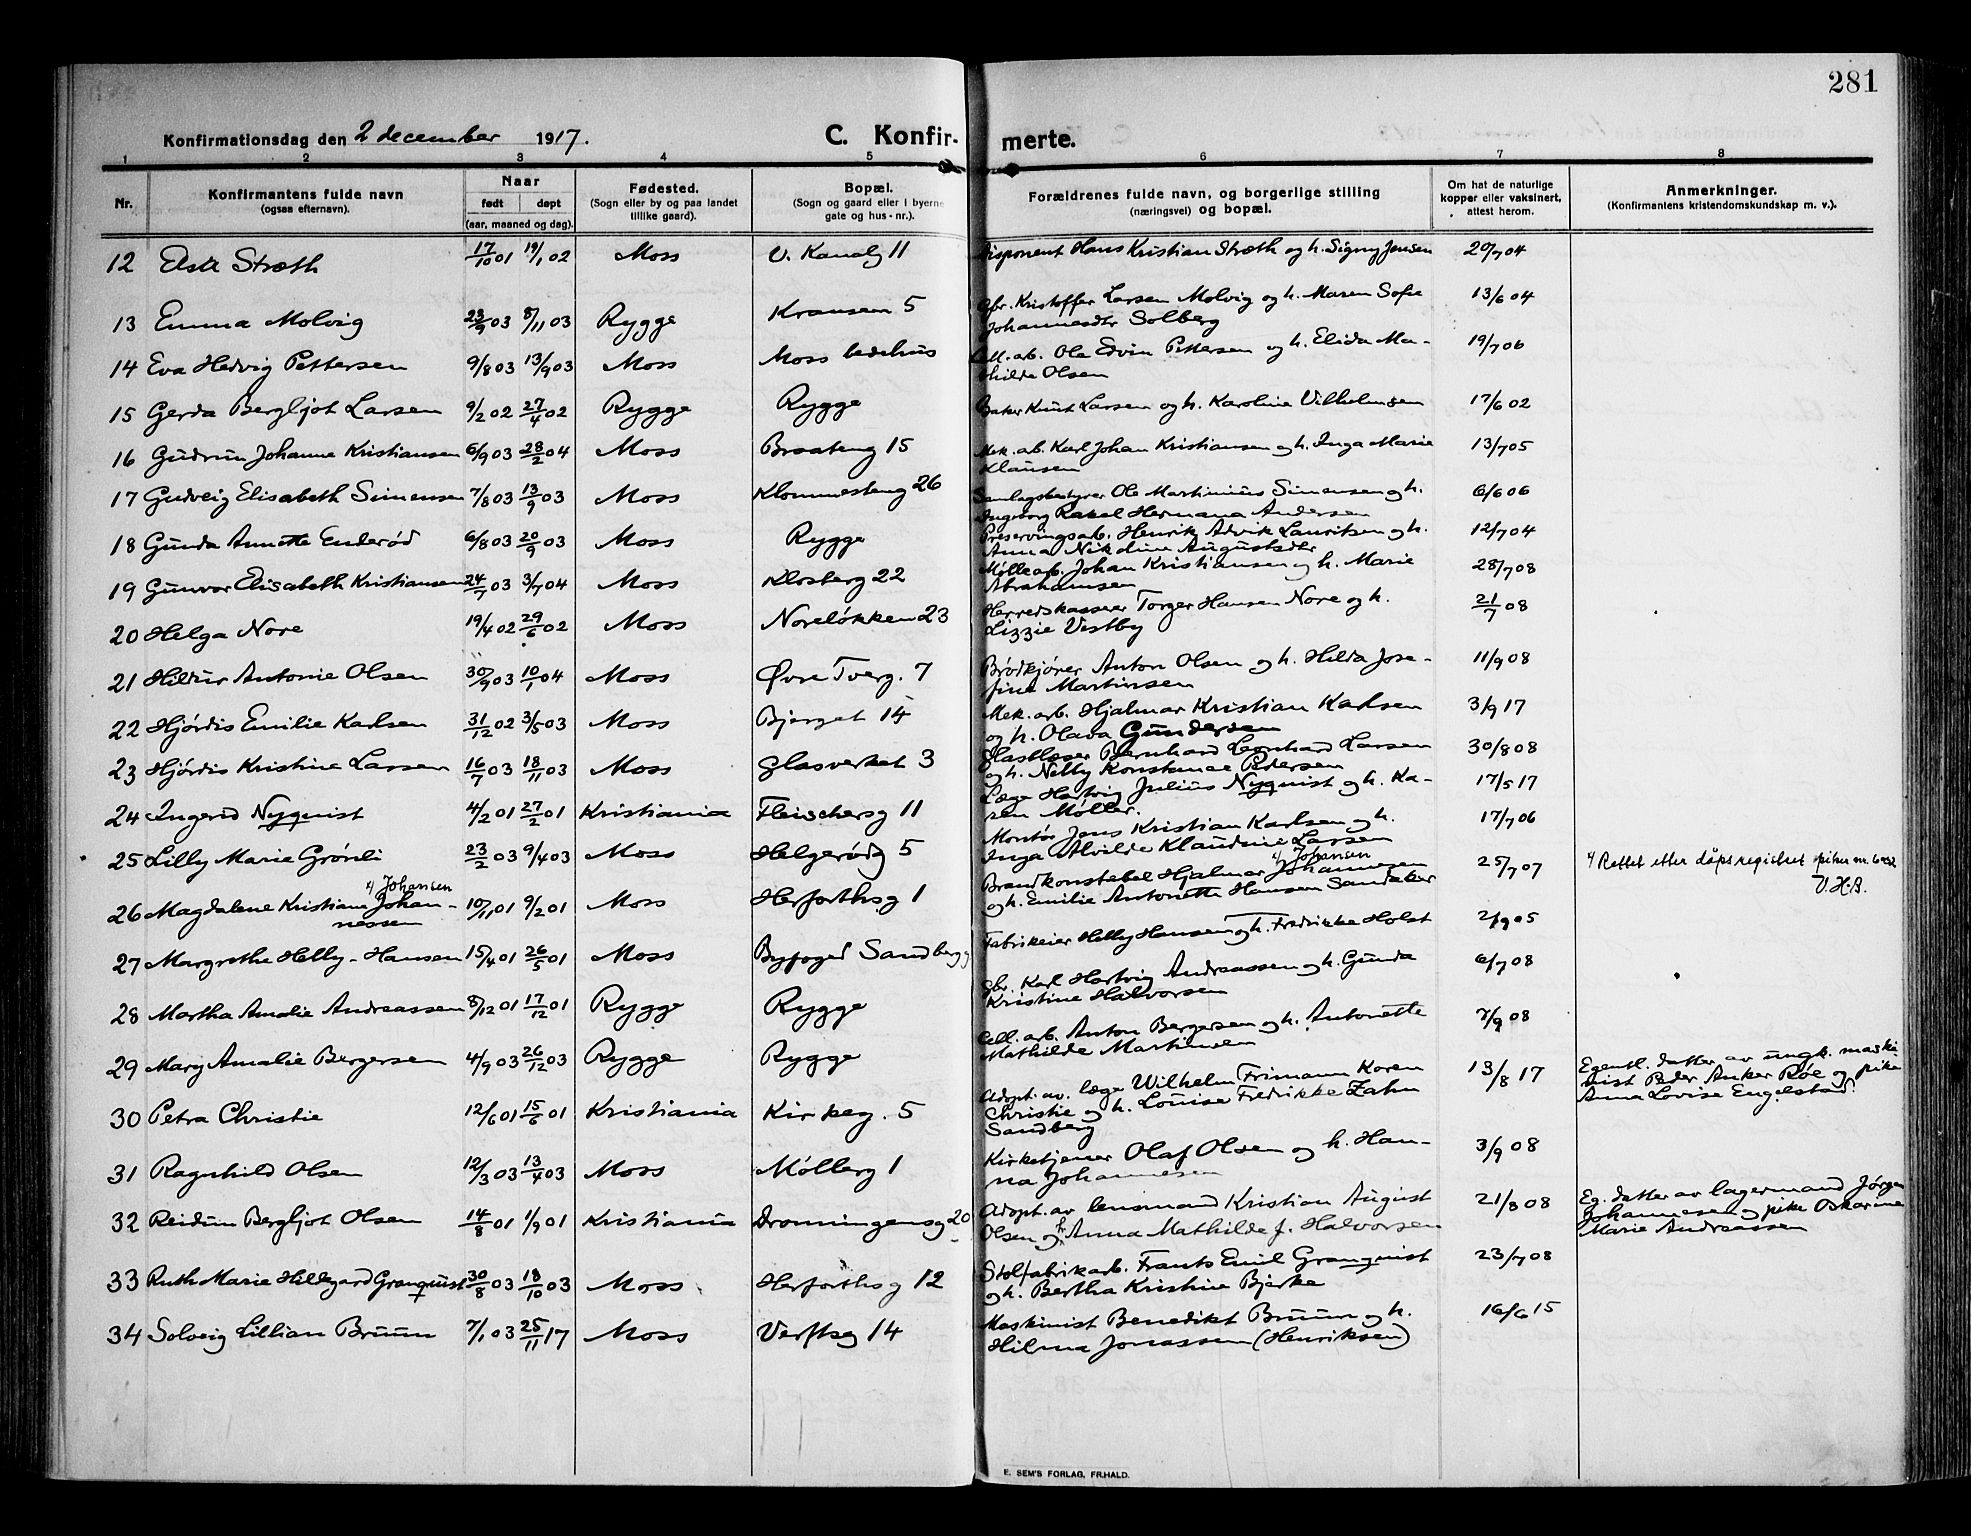 281
Konfirmationsdag den 2 december 1917.
C. Konfir- merte.
1 2 3 4 5 6 7 8
Nr.
Konfirmantens fulde navn
(ogsaa efternavn).
Naar
født døpt
(aar, maaned og dag).
Fødested.
(Sogn eller by og paa landet
tillike gaard).
Bopæl.
(Sogn og gaard eller i byerne
gate og hus-nr.).
Forældrenes fulde navn, og borgerlige stilling
(næringsvei) og bopæl.
Om hat de naturlige
kopper eller vaksinert,
attest herom.
Anmerkninger.
(Konfirmantens kristendomskundskap m. v.).
12 Else Stræth 17/10 01 19/1 02 Moss V. Kanalg 11 Disponent Hans Kristian Stræth og h. Signy Jensen 20/7 04
13 Emma Molvig 23/9 03 8/11 03 Rygge Kransen 5 Gbr. Kristoffer Larsen Molvig og h. Maren Sofie 13/6 04
Johannesdtr Solberg
14 Eva Hedvig Pettersen 9/8 03 13/9 03 Moss Moss bedehus Cell. arb. Ole Edvin Pettersen og h. Elida Ma- 19/7 06
thilde Olsen
15 Gerda Bergljot Larsen 9/2 02 27/4 02 Rygge Rygge Baker Knut Larsen og h. Karoline Vilhelmsen 17/6 02
16 Gudrun Johanne Kristiansen 6/9 03 28/2 04 Moss Braateng 15 Mek. ab. Karl Johan Kristiansen og h. Inga Marie 13/7 05
Klausen
17 Gudveig Elisabeth Simensen 7/8 03 13/9 03 Moss Klommesteng 26 Samlagsbestyrer Ole Martinius Simensen og h. 6/6 06
Ingeborg Rakel Hermana Andersen
18 Gunda Annette Enderød 6/8 03 20/9 03 Moss Rygge Preservingsarb. Henrik Advik Lauritsen og h. 12/7 04
Anna Nikoline Augustsdtr
19 Gunvor Elisabeth Kristiansen 24/7 03 3/7 04 Moss Klosberg 22 Møllearb. Johan Kristiansen og h. Marie 28/7 08
Abrahamsen
20 Helga Nore 19/4 02 29/6 02 Moss Noreløkken 23 Herredskasserer Torger Hansen Nore og h. 21/7 08
Lizzie Vestby
21 Hildur Antonie Olsen 30/9 03 10/1 04 Moss Øvre Tverg. 7 Brødkjører Anton Olsen og h. Hilda Jose- 11/9 08
fine Martinsen
22 Hjørdis Emilie Karlsen 31/12 02 3/5 03 Moss Bjerget 14 Mek. arb. Hjalmar Kristian Karlsen 3/9 17
og h. Olava Gundersen
23 Hjørdis Kristine Larsen 16/7 03 18/11 03 Moss Glasverket 3 Glasblæser Bernhard Leonhard Larsen 30/8 08
og h. Nelly Konstance Pedersen
24 Ingerid Nyquist 4/2 01 27/2 01 Kristiania Fleischersg 11 Læge Hartvig Julius Nyquist og h. Ka- 17/5 17
ren Møller.
25 Lilly Marie Grønli 23/2 03 9/4 03 Moss Helgerødg 5 Montør Jens Kristian Karlsen og h. 17/7 06
Inga Alvilde Klaudine Larsen
1) Johansen
26 Magdalene Kristiane Johan- 10/11 01 9/2 01 Moss Herforthsg 1 Brandkonstabel Hjalmar Johannesen 25/7 07 1) Rettet etter dåpsregistret
nessen
1) Johansen
og h. Emilie Antonette Hansen Sandaker
V.H.B.
27 Margrethe Helly-Hansen 15/4 01 26/5 01 Moss Byfoged Sandbergg Fabrikeier Helly Hansen og h. Fredrikke Holst 2/9 05
28 Martha Amalie Andreassen 8/12 01 17/12 01 Rygge Rygge Gbr. Karl Hartvig Andreassen og h. Gunda 6/7 08
Kristine Halvorsen
29 Mary Amalie Bergersen 4/9 03 26/12 03 Rygge Rygge Cell. arb. Anton Bergersen og h. Antonette 7/9 08
Mathilde Martinsen
30 Petra Christie 12/6 01 15/6 01 Kristiania Kirkeg. 5 Adopt. av. læge Wilhelm Frimann Koren 13/8 17 Egentl. datter av ungk. maski-
Christie og h. Louise Fredrikke Zahn nist Peder Anker Røe og pike
Sandberg Anna Lovise Engelstad.
31 Ragnhild Olsen 12/3 03 13/4 03 Moss Møllerg 1 Kirketjener Olaf Olsen og h. Han- 3/9 08
na Johannesen
32 Reidun Bergljot Olsen 14/8 01 1/9 01 Kristiania Dronningensg 20 Adopt. av lensmand Kristian August 21/8 08 Eg. datter av lagermand Jørgen
Olsen og h. Anna Mathilde f. Halvorsen Johannesen og pike Oskarine
Marie Andreassen
33 Ruth Marie Hildegard Granquist 30/8 03 18/10 03 Moss Herforthsg 12 Stolfabrikarb. Frants Emil Granquist 23/7 08
og h. Bertha Kristine Bjerke
34 Solveig Lillian Bruun 7/1 03 25/11 17 Moss Verftsg 14 Maskinist Benedikt Bruun og h. 16/6 15
Hilma Jonassen (Henriksen)
E. SEM'S FORLAG, FR.HALD.